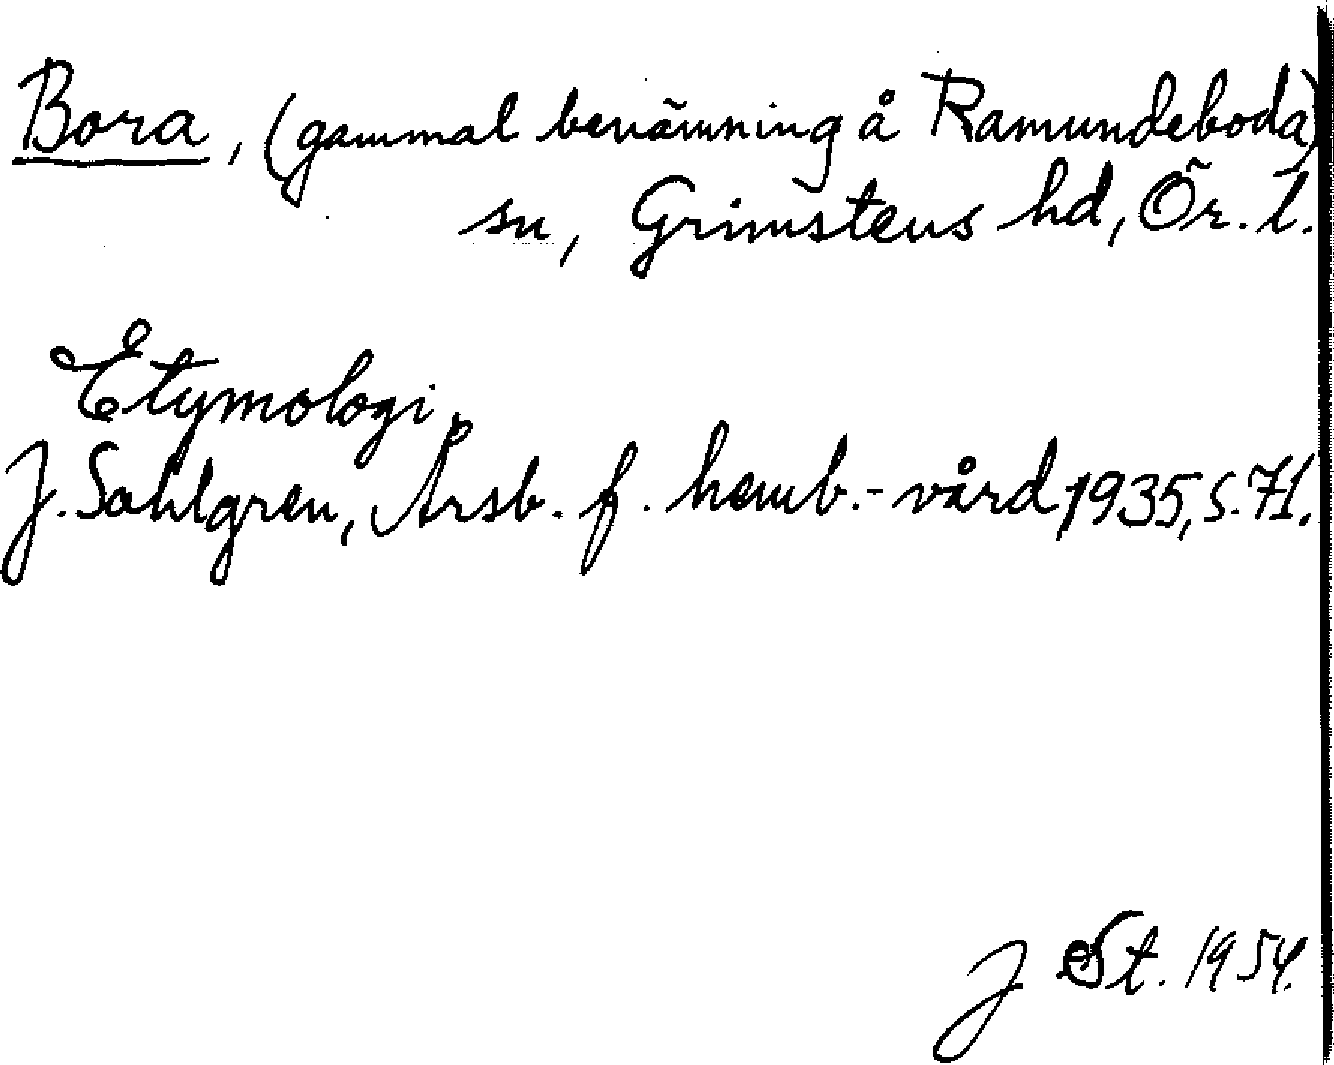 Bora, (gammal benämning å Ramundeboda)
sn, Grimstens hd, Ör. l.
Etymologi.
J. Sahlgren, Årsb. f. hemb.-vård 1935, s. 71.
J St. 1954.